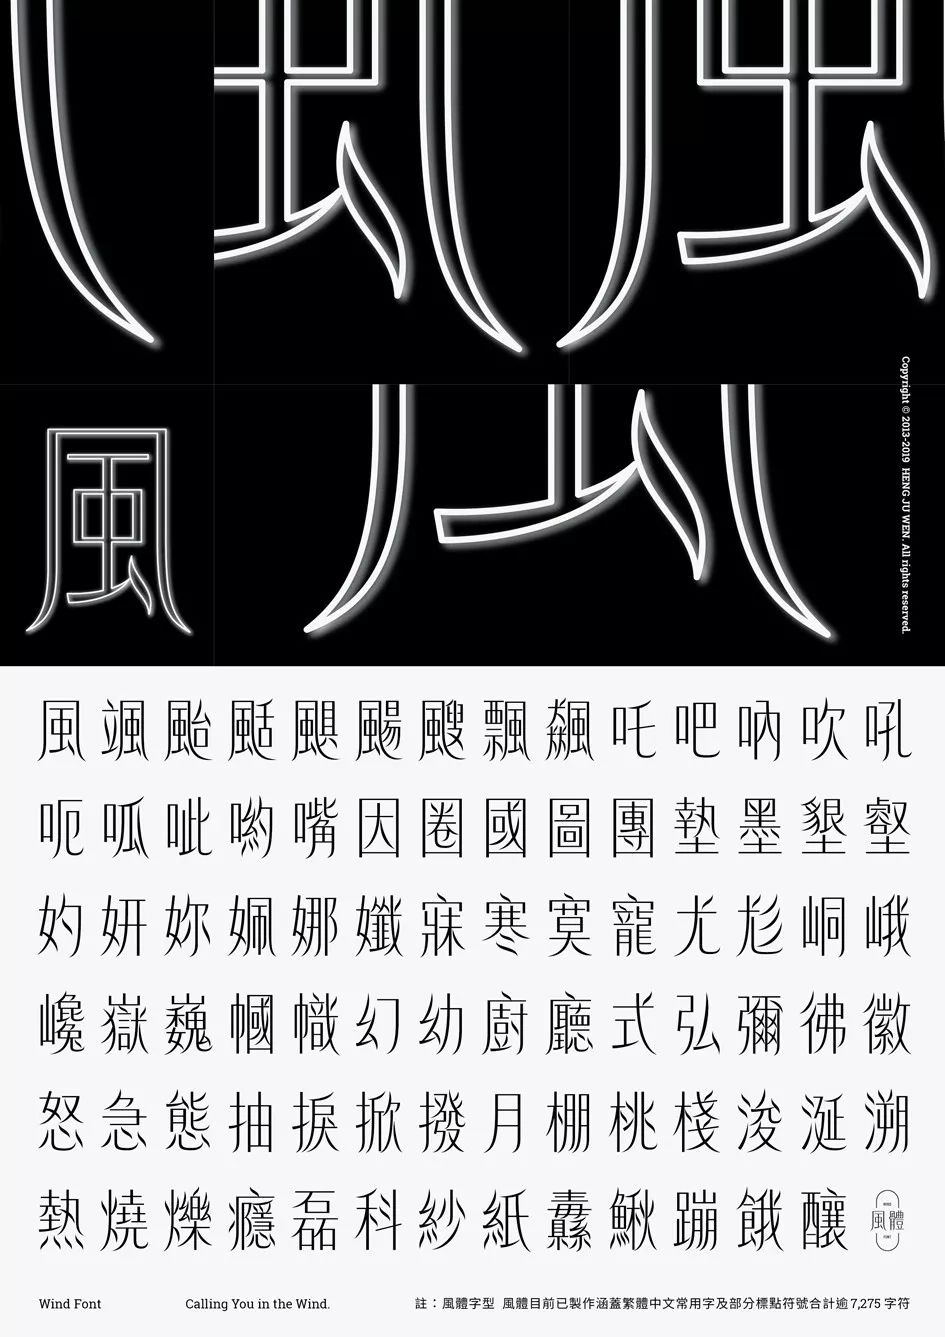 風
Copyright © 2013-2019 HENG JU WEN. All rights reserved.
風颯颱颳颶颺颼飄飆吒吧吶吹吼
呃呱呲喲嘴因圈國圖團墊墨墾壑
妁妍妳姵娜孅寐寒寞寵尤尨峒峨
巉嶽巍幗幟幻幼廚廳式弘彌彿徽
怒急態抽捩掀撥月棚桃棧浚涎溯
熱燒爍癮磊科紗紙纛鰍蹦餓釀
WIND
風體
FONT
Wind Font
Calling You in the Wind.
註：風體字型 風體目前已製作涵蓋繁體中文常用字及部分標點符號合計逾7,275字符